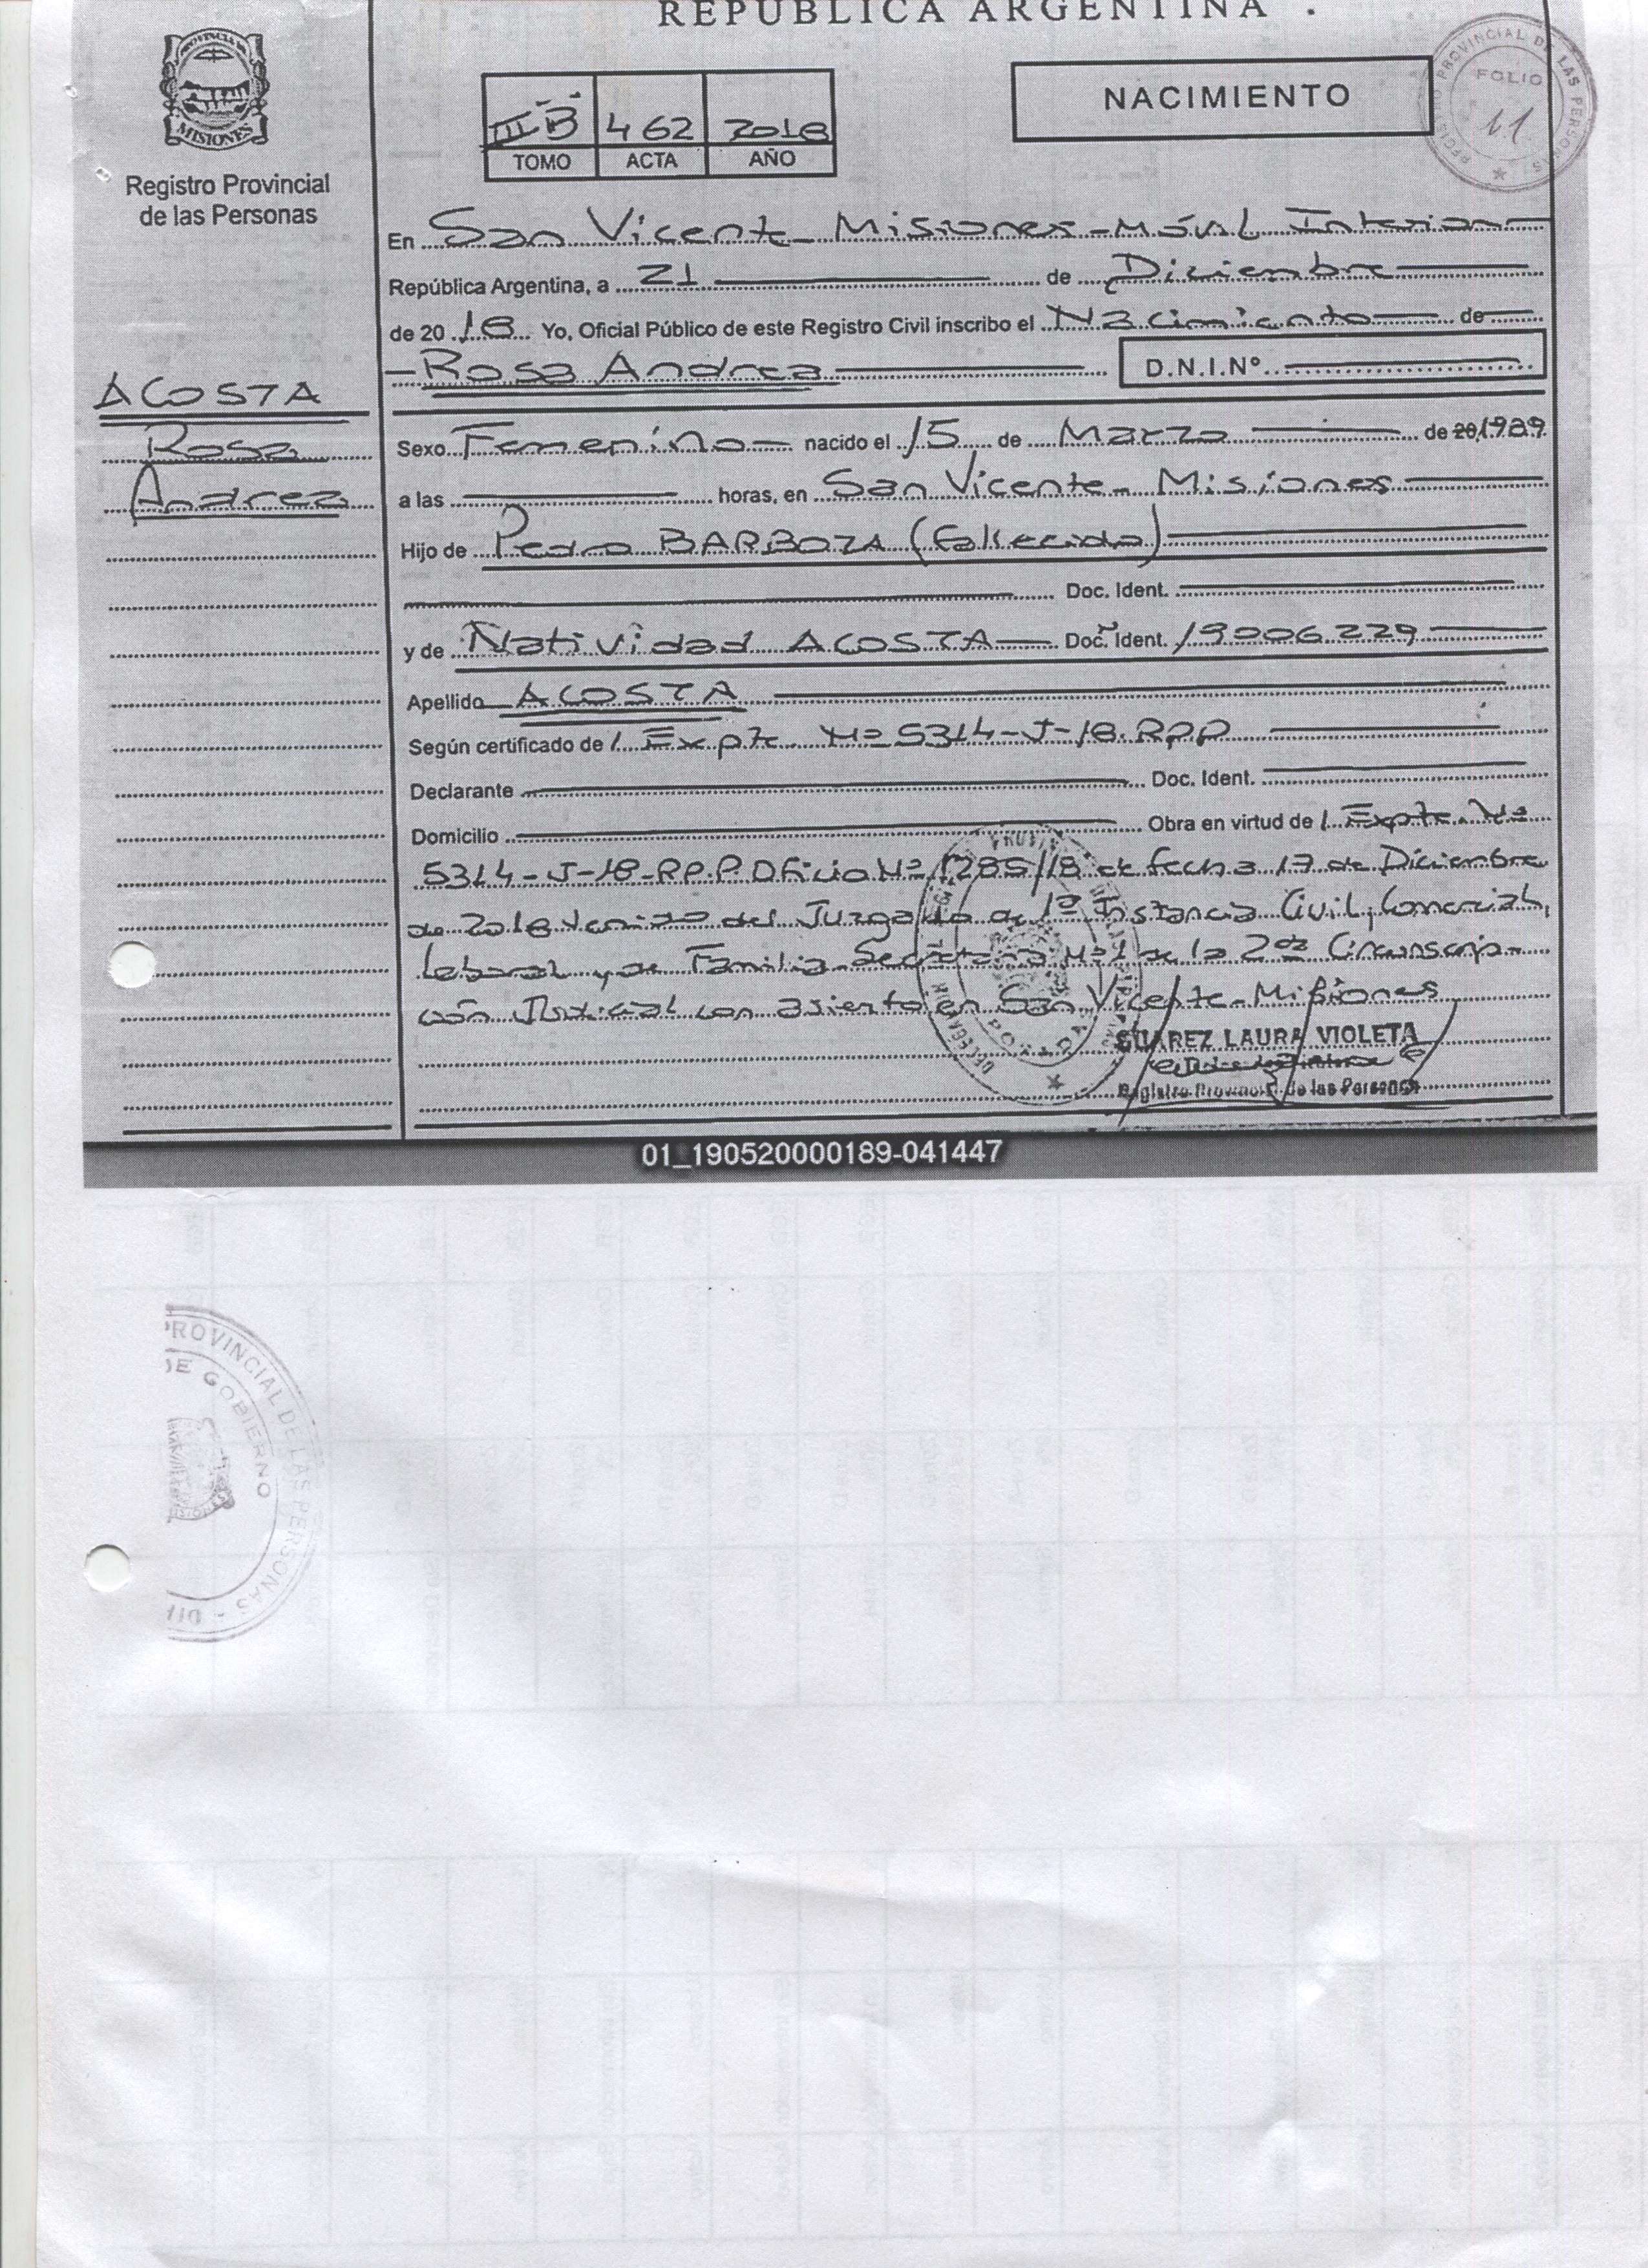 REPUBLICA ARGENTINA
PROVINCIA DE
MISIONES
Registro Provincial
de las Personas
III B 462 2018
TOMO ACTA AÑO
NACIMIENTO
REGISTRO PROVINCIAL DE LAS PERSONAS
FOLIO
11
En San Vicente - Misiones - Móvil Interior
República Argentina, a 21 de Diciembre
de 2018 Yo, Oficial Público de este Registro Civil inscribo el Nacimiento de
Rosa Andrea D.N.I.Nº
ACOSTA
Rosa
Andrea
Sexo Femenino nacido el 15 de Marzo de 20 1989
a las horas, en San Vicente - Misiones
Hijo de Pedro BARBOZA (fallecido)
Doc. Ident.
y de Natividad ACOSTA Doc. Ident. 19006.229
Apellido ACOSTA
Según certificado de / Expte. Nº 5314-J-18.RPP
Declarante Doc. Ident.
Domicilio Obra en virtud de / Expte. Nº
5314-J-18-RP.P. Oficio Nº 1285/18 de fecha 17 de Diciembre
de 2018 venido del Juzgado de 1º Instancia Civil, Comercial,
Laboral y de Familia. Secretaria Nº 1 de la 2da Circunscrip-
ción Judicial con asiento en San Vicente - Misiones
POSADAS
SUAREZ LAURA VIOLETA
Registro Provincial de las Personas
01_190520000189-041447
PROVINCIAL DE LAS PERSONAS - DIR
DE GOBIERNO